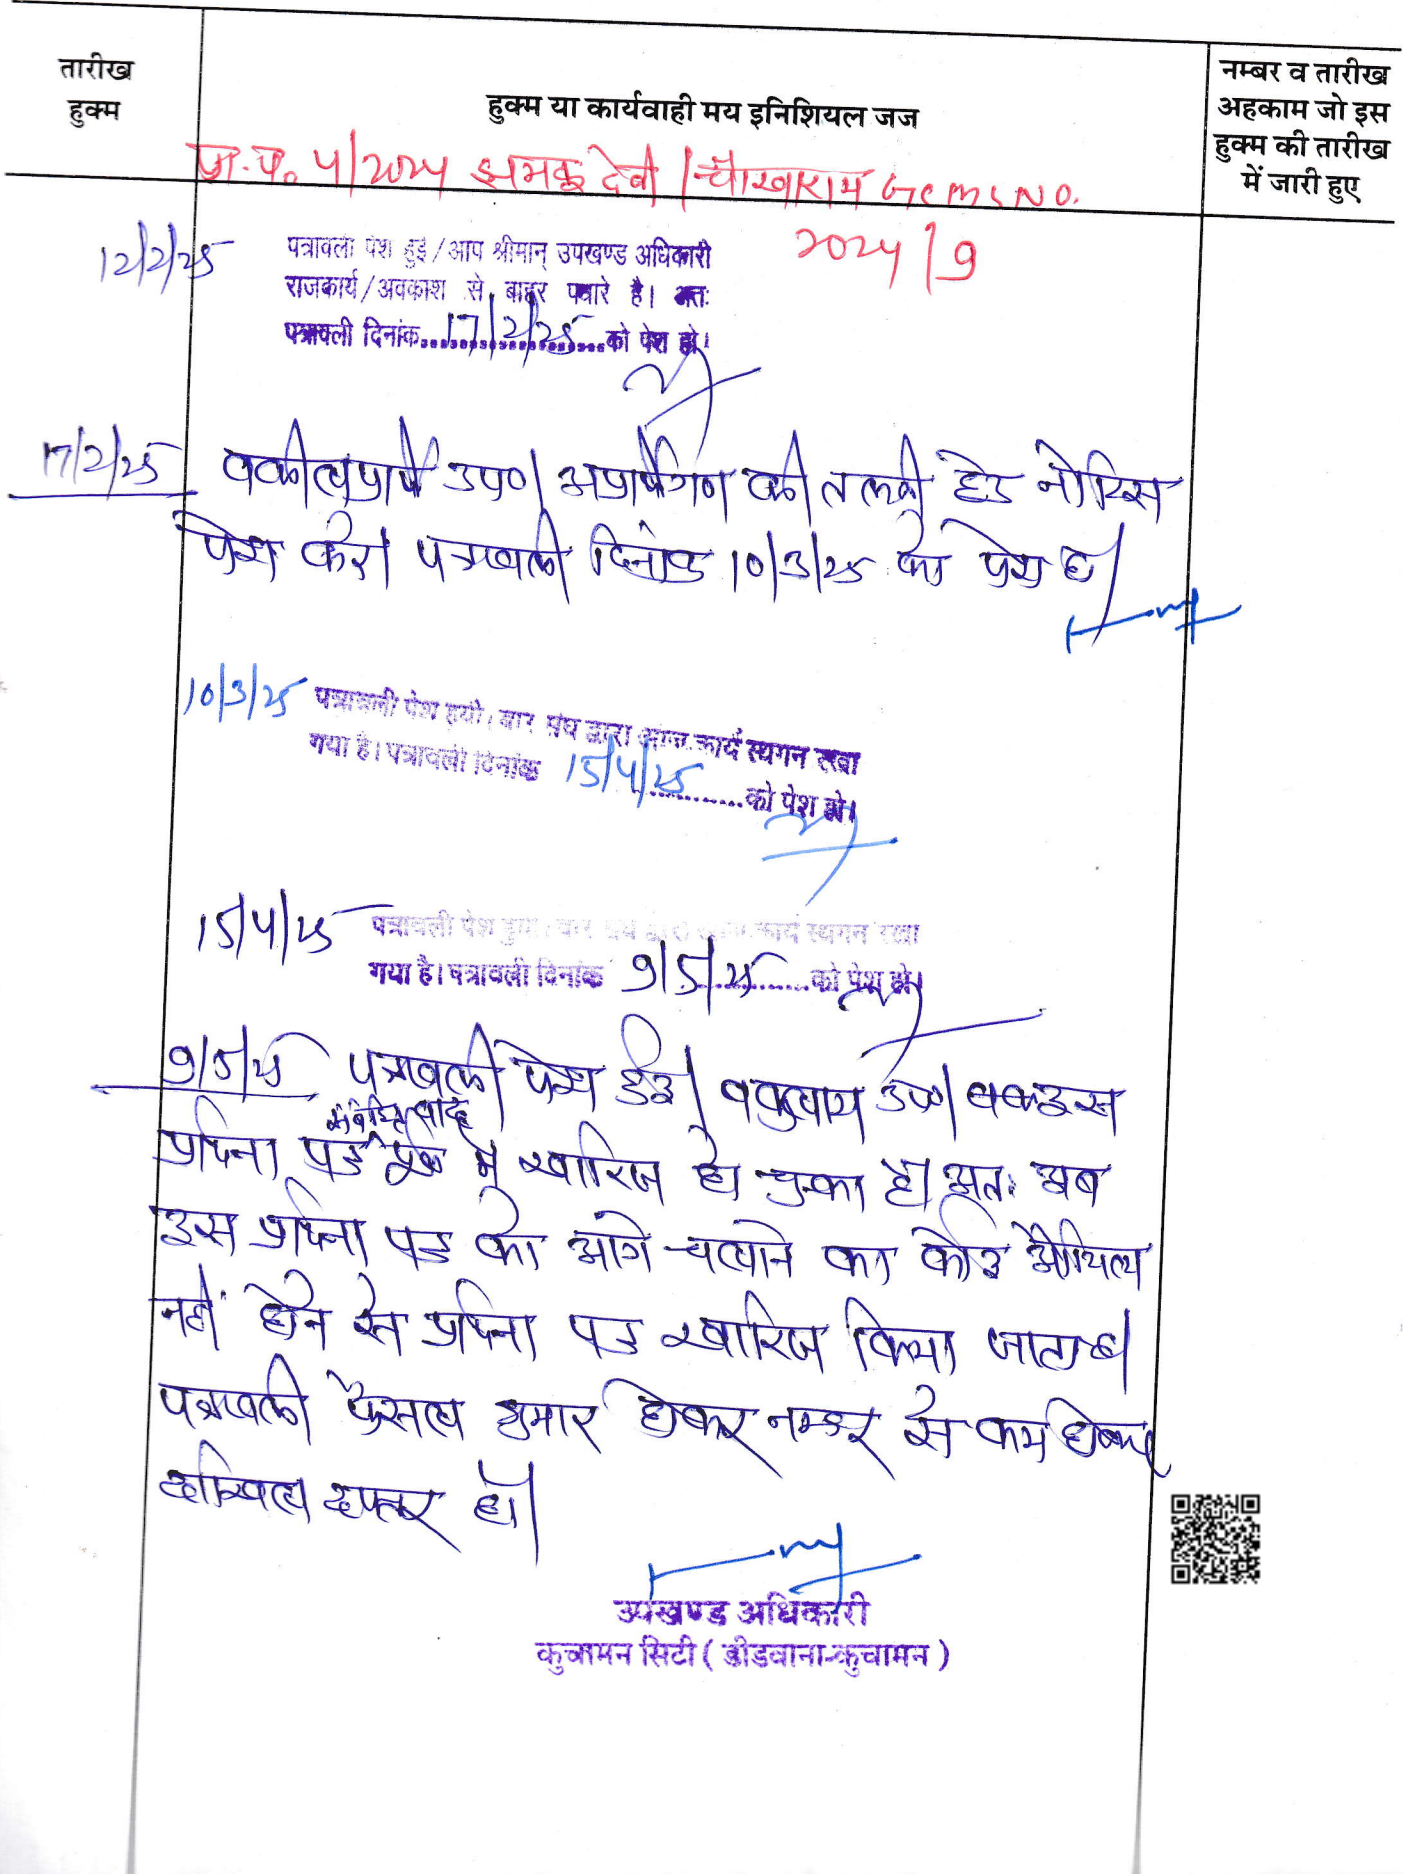 तारीख
हुक्म
हुक्म या कार्यवाही मय इनिशियल जज
नम्बर व तारीख
अहकाम जो इस
हुक्म की तारीख
में जारी हुए
प्रा.प. 4/2024 झमकू देवी / चौखाराम GCMS NO.
2024/9
12/2/25 पत्रावली पेश हुई/आप श्रीमान् उपखण्ड अधिकारी
राजकार्य/अवकाश से बाहर पधारे है। अतः
पत्रावली दिनांक 17/2/25 को पेश हो।
17/2/25 वकील प्रार्थी उप0। अप्रार्थीगण की तलबी हेतु नोटिस
पेश करे। पत्रावली दिनांक 10/3/25 को पेश हो।
10/3/25 पत्रावली पेश हुयी। बार संघ द्वारा आज कार्य स्थगन रखा
गया है। पत्रावली दिनांक 15/4/25 को पेश हो।
15/4/25 पत्रावली पेश हुयी। बार संघ द्वारा आज कार्य स्थगन रखा
गया है। पत्रावली दिनांक 9/5/25 को पेश हो।
9/5/25 पत्रावली पेश हुई। वकुलाय उप0।
संबंधित वाद
प्रार्थना पत्र पूर्व में खारिज हो चुका है। अतः अब
इस प्रार्थना पत्र को आगे चलाने का कोई औचित्य
नहीं होने से प्रार्थना पत्र खारिज किया जाता है।
पत्रावली फैसल शुमार होकर नम्बर से कम होकर
दाखिल दफ्तर हो।
उपखण्ड अधिकारी
कुचामन सिटी ( डीडवाना-कुचामन )